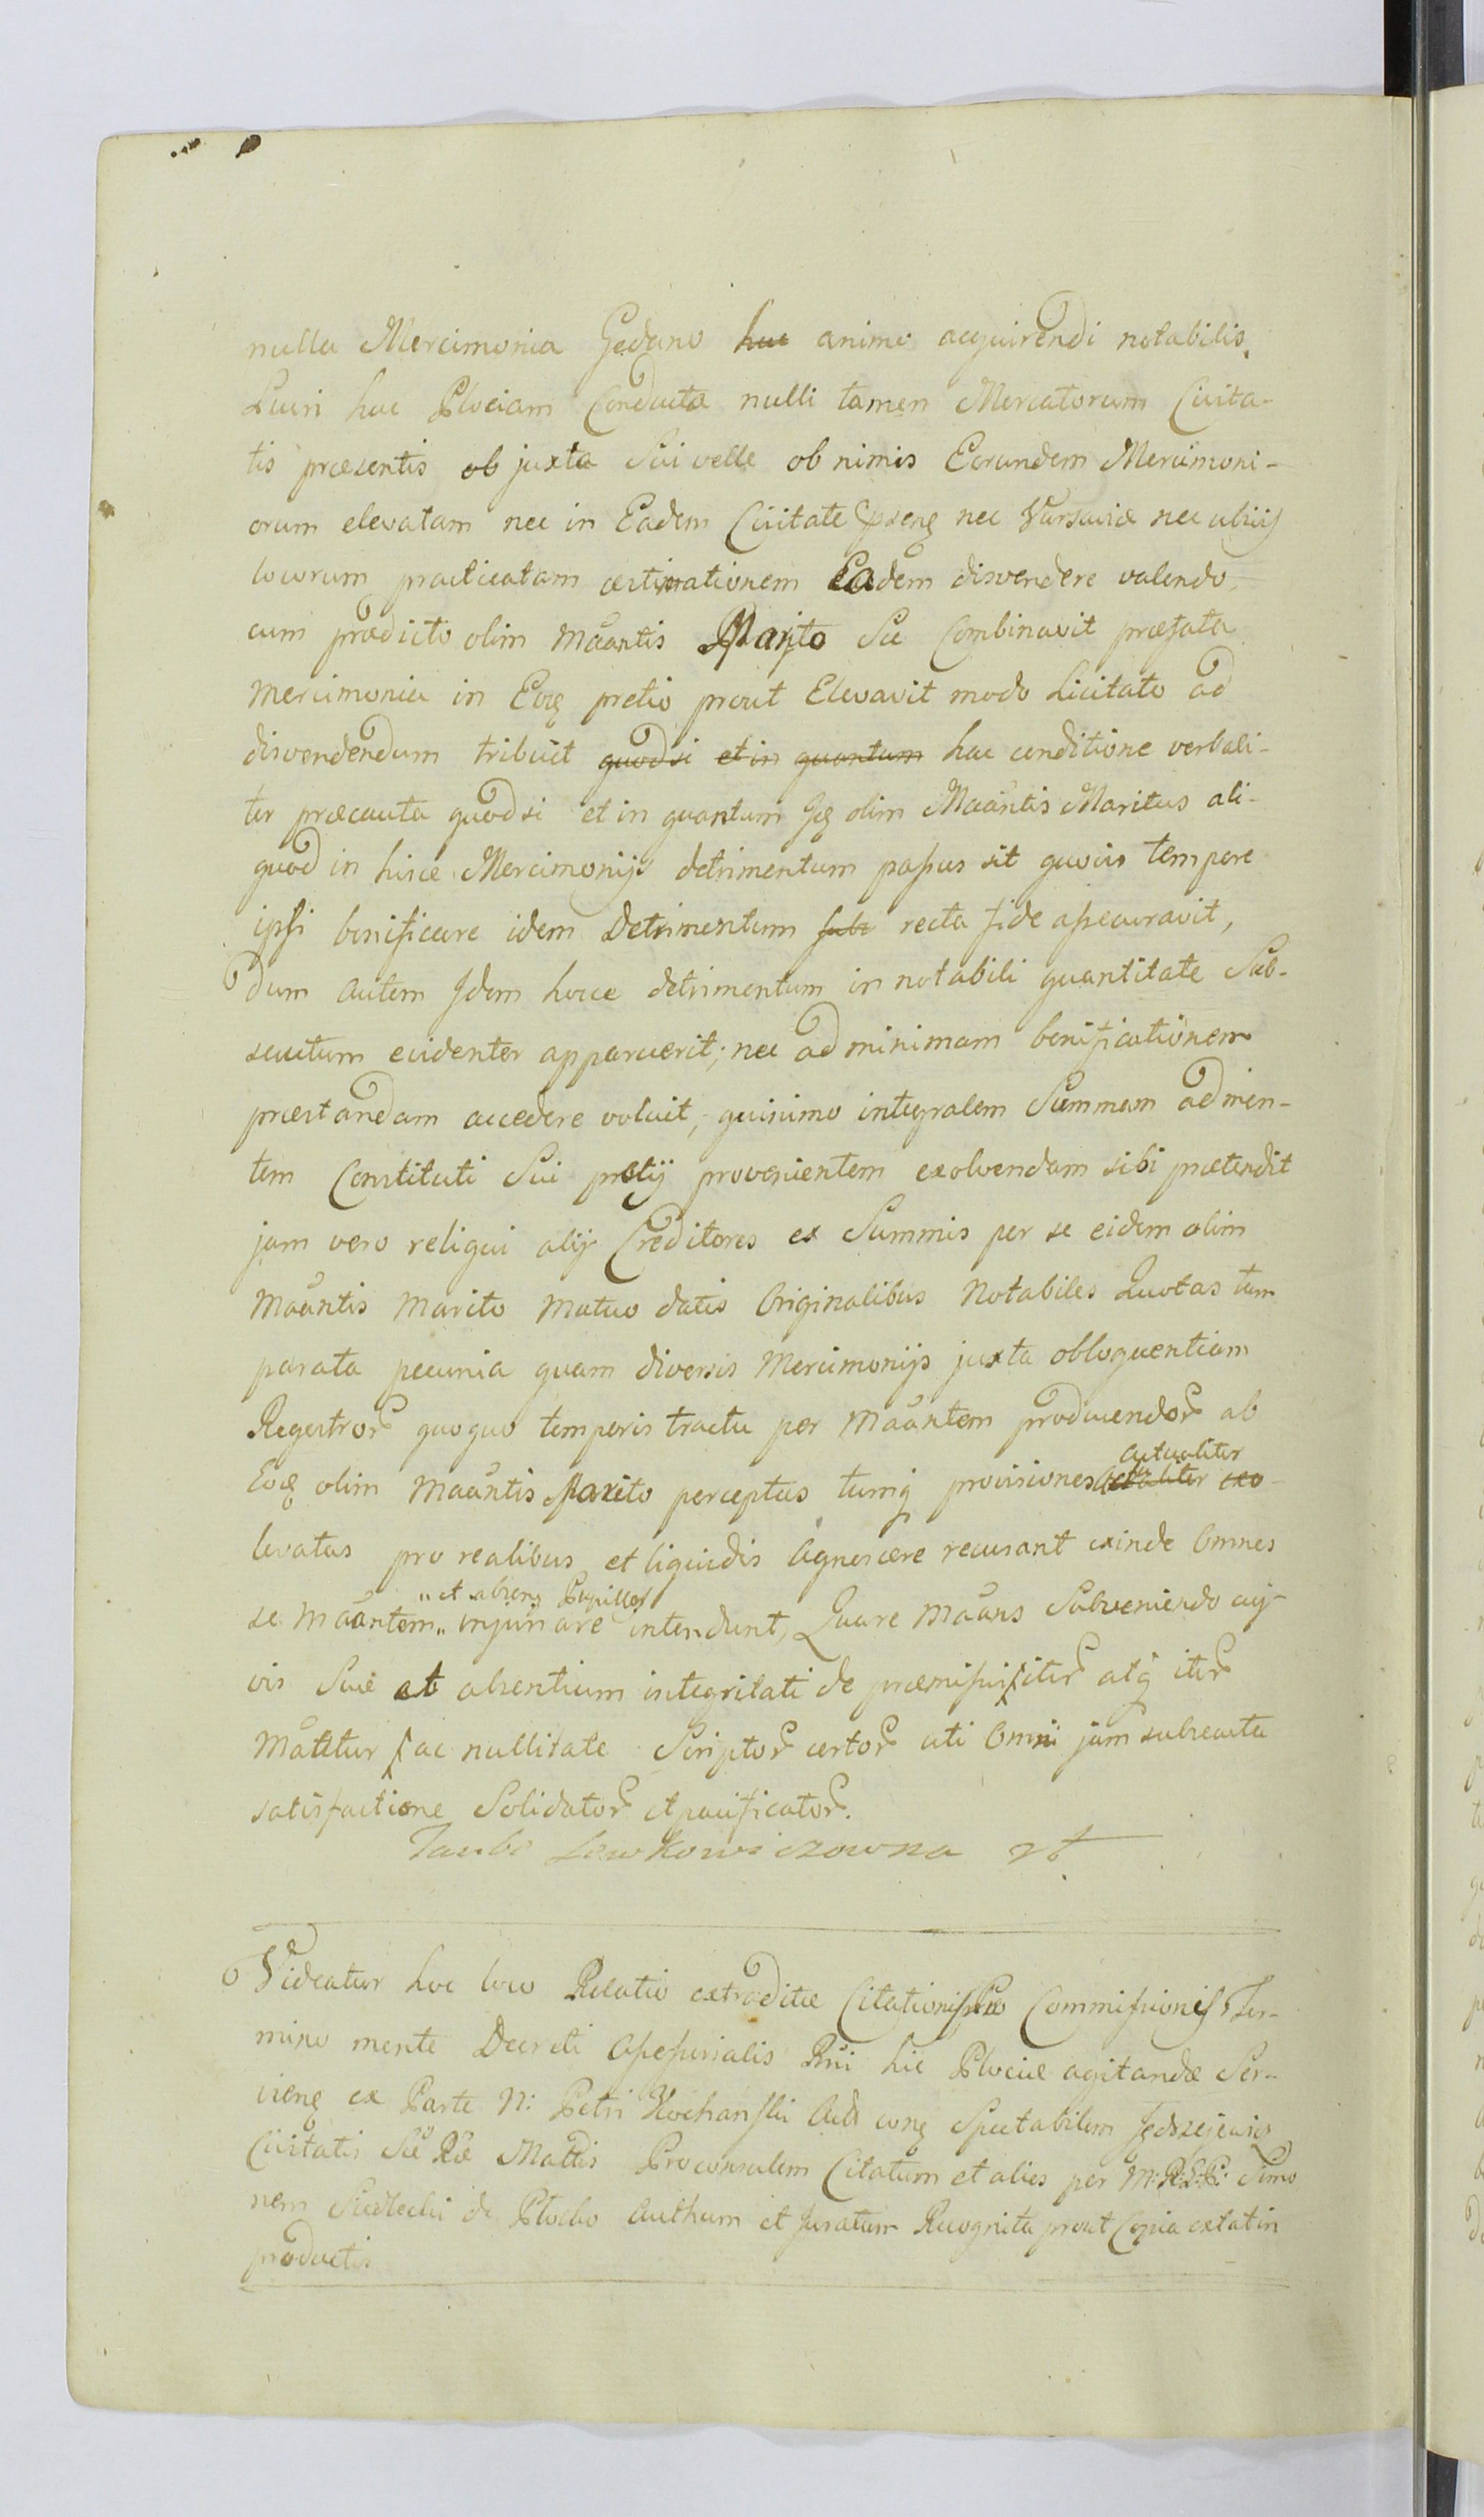 nulla Mercimonia Gedano huc animo acquirendi notabilis
Lucri huc Plociam Conducta nulli tamen Mercatorum Civita-
tis præsentis ob juxta Sui velle ob nimis Eorundem Mercimoni-
orum elevatam nec in Eadem Civitate nec Varsaviæ nec
locorum practicatam æstimationem Eadem disvendere valendo,
cum prædicto olim Mãntis Marito Se Combinavit præfata
Mercimonia in pretio prout Elevavit modo Licitato ad
disvendendum tribuit quod si et in quantum hac conditione verbali-
ter præcauta quod si et in quantum olim Maãntis Maritus ali-
quod in hisce Mercimonijs detrimentum passus sit quovis tempore
ipsi bonificare idem Detrimentum recta fide assecuravit,
dum autem Idem hocce detrimentum in notabili quantitate Sub-
secutum evidenter apparuerit; nec ad minimam bonificationem
præstandam accedere voluit, quinimo integralem Summam ad men-
tem Constituti Sui pretij provenientem exolvendam sibi prætendit
jam vero reliqui alij Creditores ex Summis per se eidem olim
Maãntis Marito Mutuo datis Originalibus Notabiles Quotas tam
parata pecunia quam diversis Mercimonijs juxta obloquentiam
quoquo temporis tractu per Maãntem ab
olim Maãntis Marito perceptas provisiones actualiter exo-
actualiter
levatas pro realibus et liquidis Agnoscere recusant exinde Omnes
et Pupillos
se Maãntem injuriare intendunt, Quare Maãns Subveniendo
vis Suæ et absentium integritati de præmissis
ac nullitate uti Omni jam subsecuta
satisfactione
Taube Lewkowiczowna

Videatur hoc loco Relatio extraditæ Citationis Commissionis Ter-
mino mente Decreti Assessorialis hic Plociæ agitandæ Ser-
ex Parte N: Petri Kochanski Spectabilem
Civitatis Proconsulem Citatum et alios per Simo
nem Siedlecki de Plocko et Juratum Recognita prout Copia extat in
productis